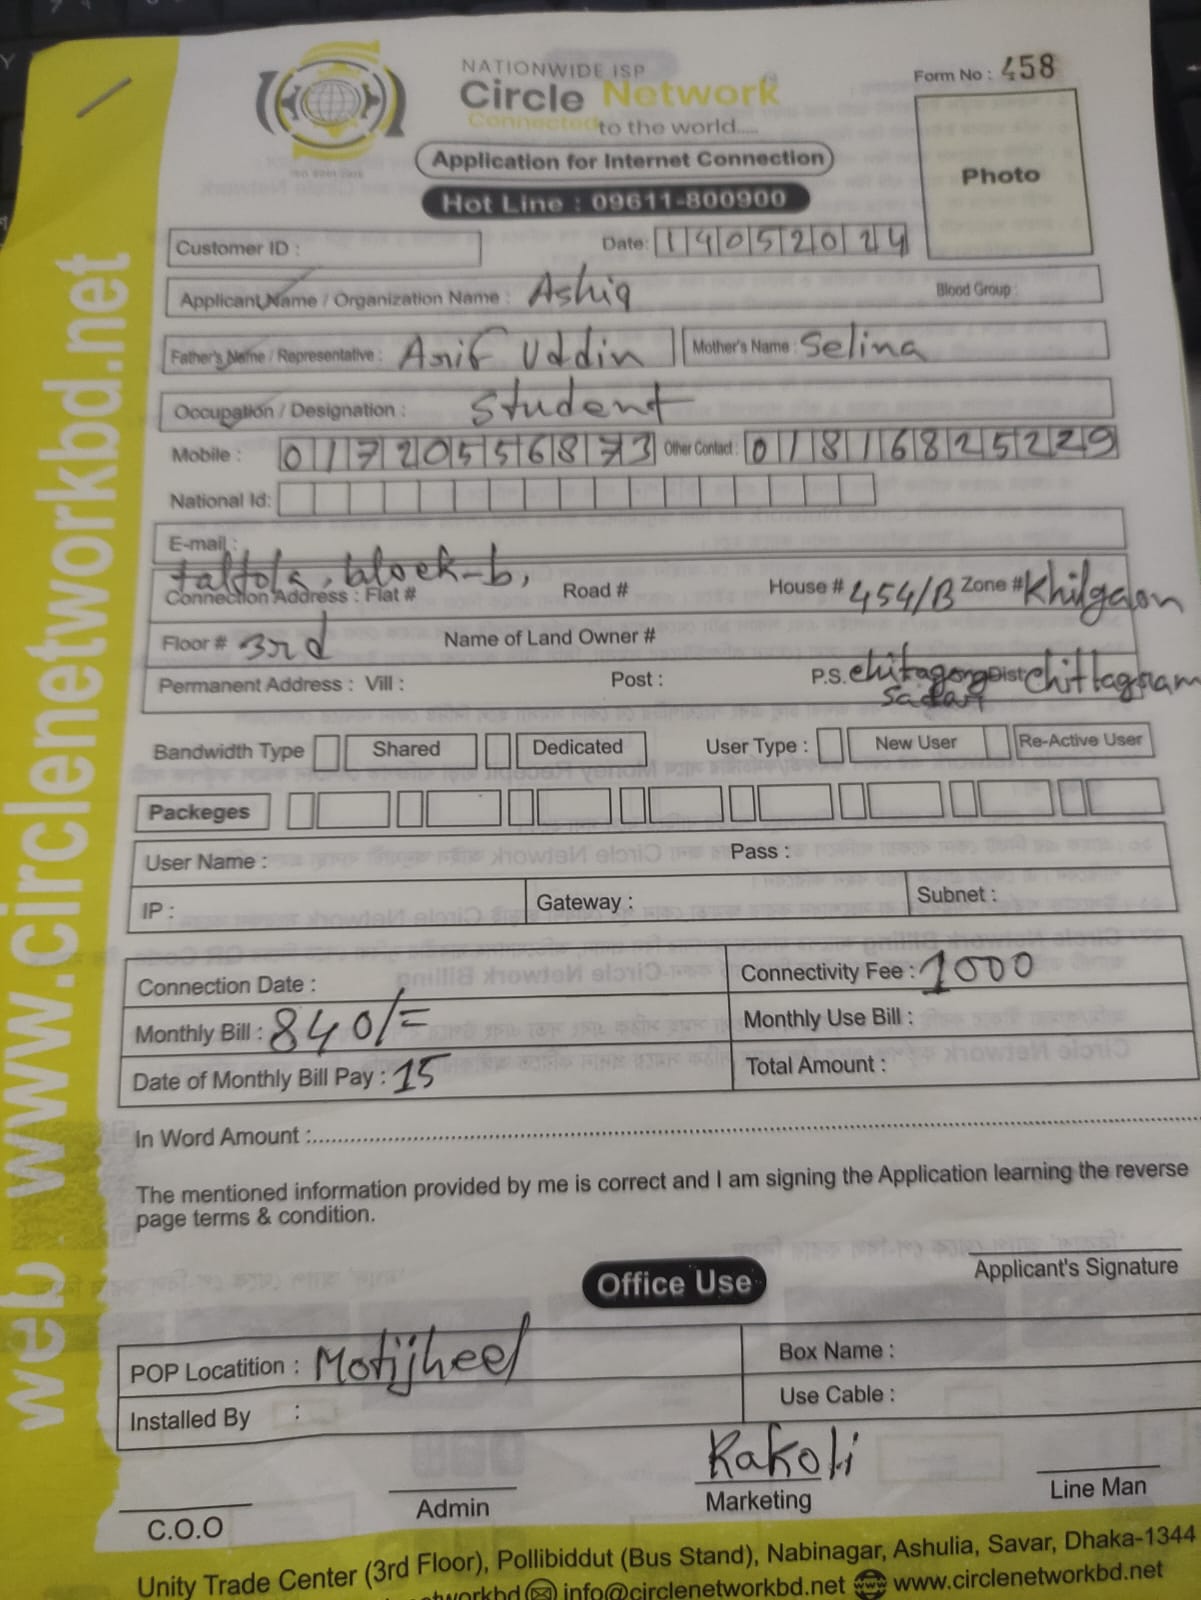 NATIONWIDE ISP
Circle Network
Connected to the world.....
ISO 9001 2015
Form No : 458
Application for Internet Connection
Hot Line : 09611-800900
Photo
Customer ID :
Date: 14052024
Applicant Name / Organization Name : Ashiq
Blood Group :
Father's Name / Representative : Arif Uddin
Mother's Name : Selina
Occupation / Designation : Student
Mobile : 01720556873
Other Contact : 01816825229
National Id:
E-mail :
taltola, block-b,
Connection Address : Flat # Road # House # 454/B Zone # Khilgaon
Floor # 3rd Name of Land Owner #
Permanent Address : Vill : Post : P.S. chitagong Dist chittagram
sadar
Bandwidth Type Shared Dedicated User Type : New User Re-Active User
Packeges
User Name : Pass :
IP : Gateway : Subnet :
Connection Date : Connectivity Fee : 1000
Monthly Bill : 840/= Monthly Use Bill :
Date of Monthly Bill Pay : 15 Total Amount :
In Word Amount :
The mentioned information provided by me is correct and I am signing the Application learning the reverse
page terms & condition.
Applicant's Signature
Office Use
POP Locatition : Motijheel Box Name :
Installed By : Use Cable :
Kakoli
C.O.O Admin Marketing Line Man
Unity Trade Center (3rd Floor), Pollibiddut (Bus Stand), Nabinagar, Ashulia, Savar, Dhaka-1344
networkbd info@circlenetworkbd.net www.circlenetworkbd.net
web www.circlenetworkbd.net